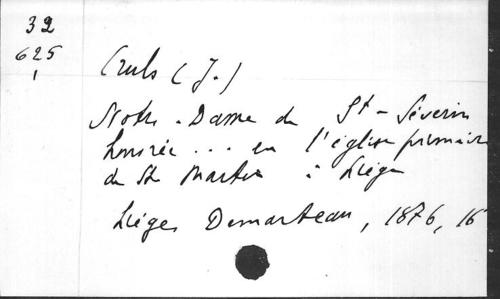 32
625
1
Cruls (J.)
Notre-Dame de St-Séverin
honorée ... en l'église primaire
de St Martin à Liége
Liége, Demarteau, 1876, 16